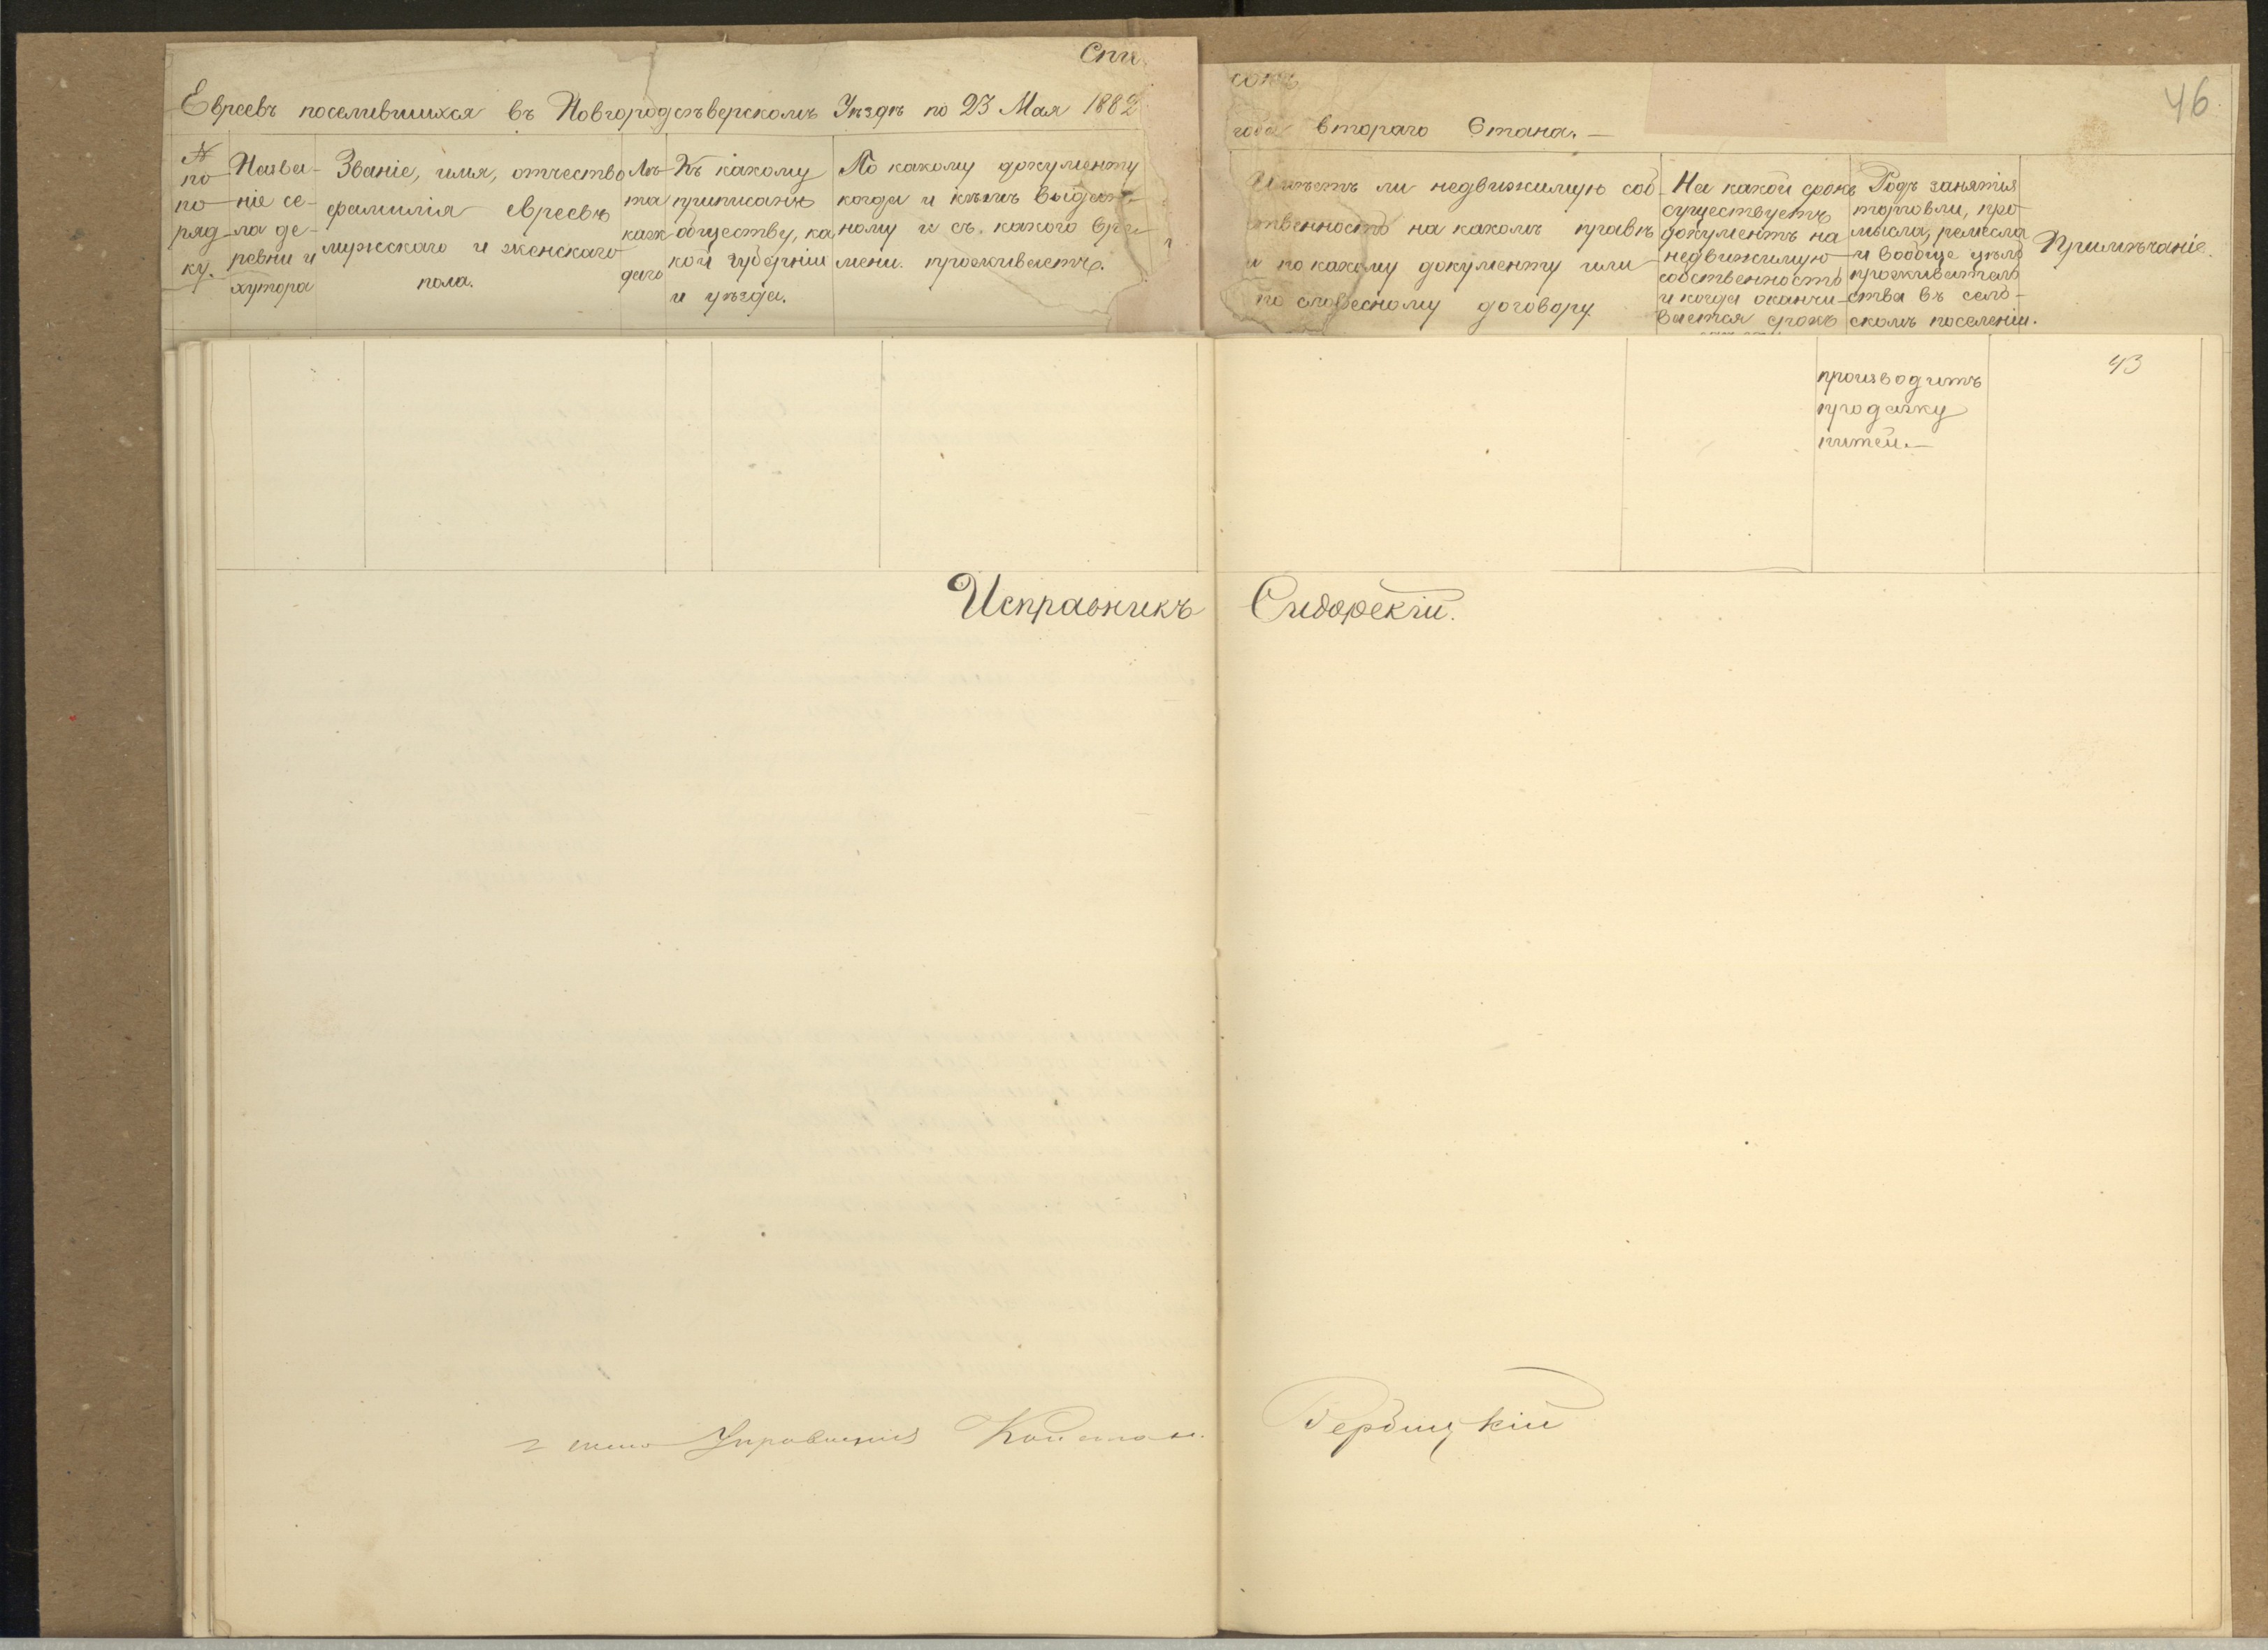 Спи
сокъ
46
Евреевъ поселившихся въ Новгородсѣверскомъ Уѣздѣ по 23 Мая 1882
года втораго Стана. —
№
по
по-
ряд-
ку.
Назва-
ніе се-
ла де-
ревни и
хутора
Званіе, имя, отчество
фамилія евреевъ
мужскаго и женскаго
пола.
Лѣ-
та
каж
даго
Къ какому
приписанъ
обществу, ка
кой губерніи
и уѣзда.
По какому документу
когда и кѣмъ выдан-
ному и съ какого вре-
мени проживаетъ.
Имѣетъ ли недвижимую соб-
ственность на какомъ правѣ
и по какому документу или
по словесному договору
На какой срокъ
существуетъ
документъ на
недвижимую
собственность
и когда оканчи-
вается срокъ
Родъ занятія
торговли, про
мысла, ремесла
и вообще цѣль
прожительства
ства въ сель-
скомъ поселеніи.
Примѣчаніе.
43
производитъ
продажу
питей. —
Исправникъ Сидорскій.
Управленія